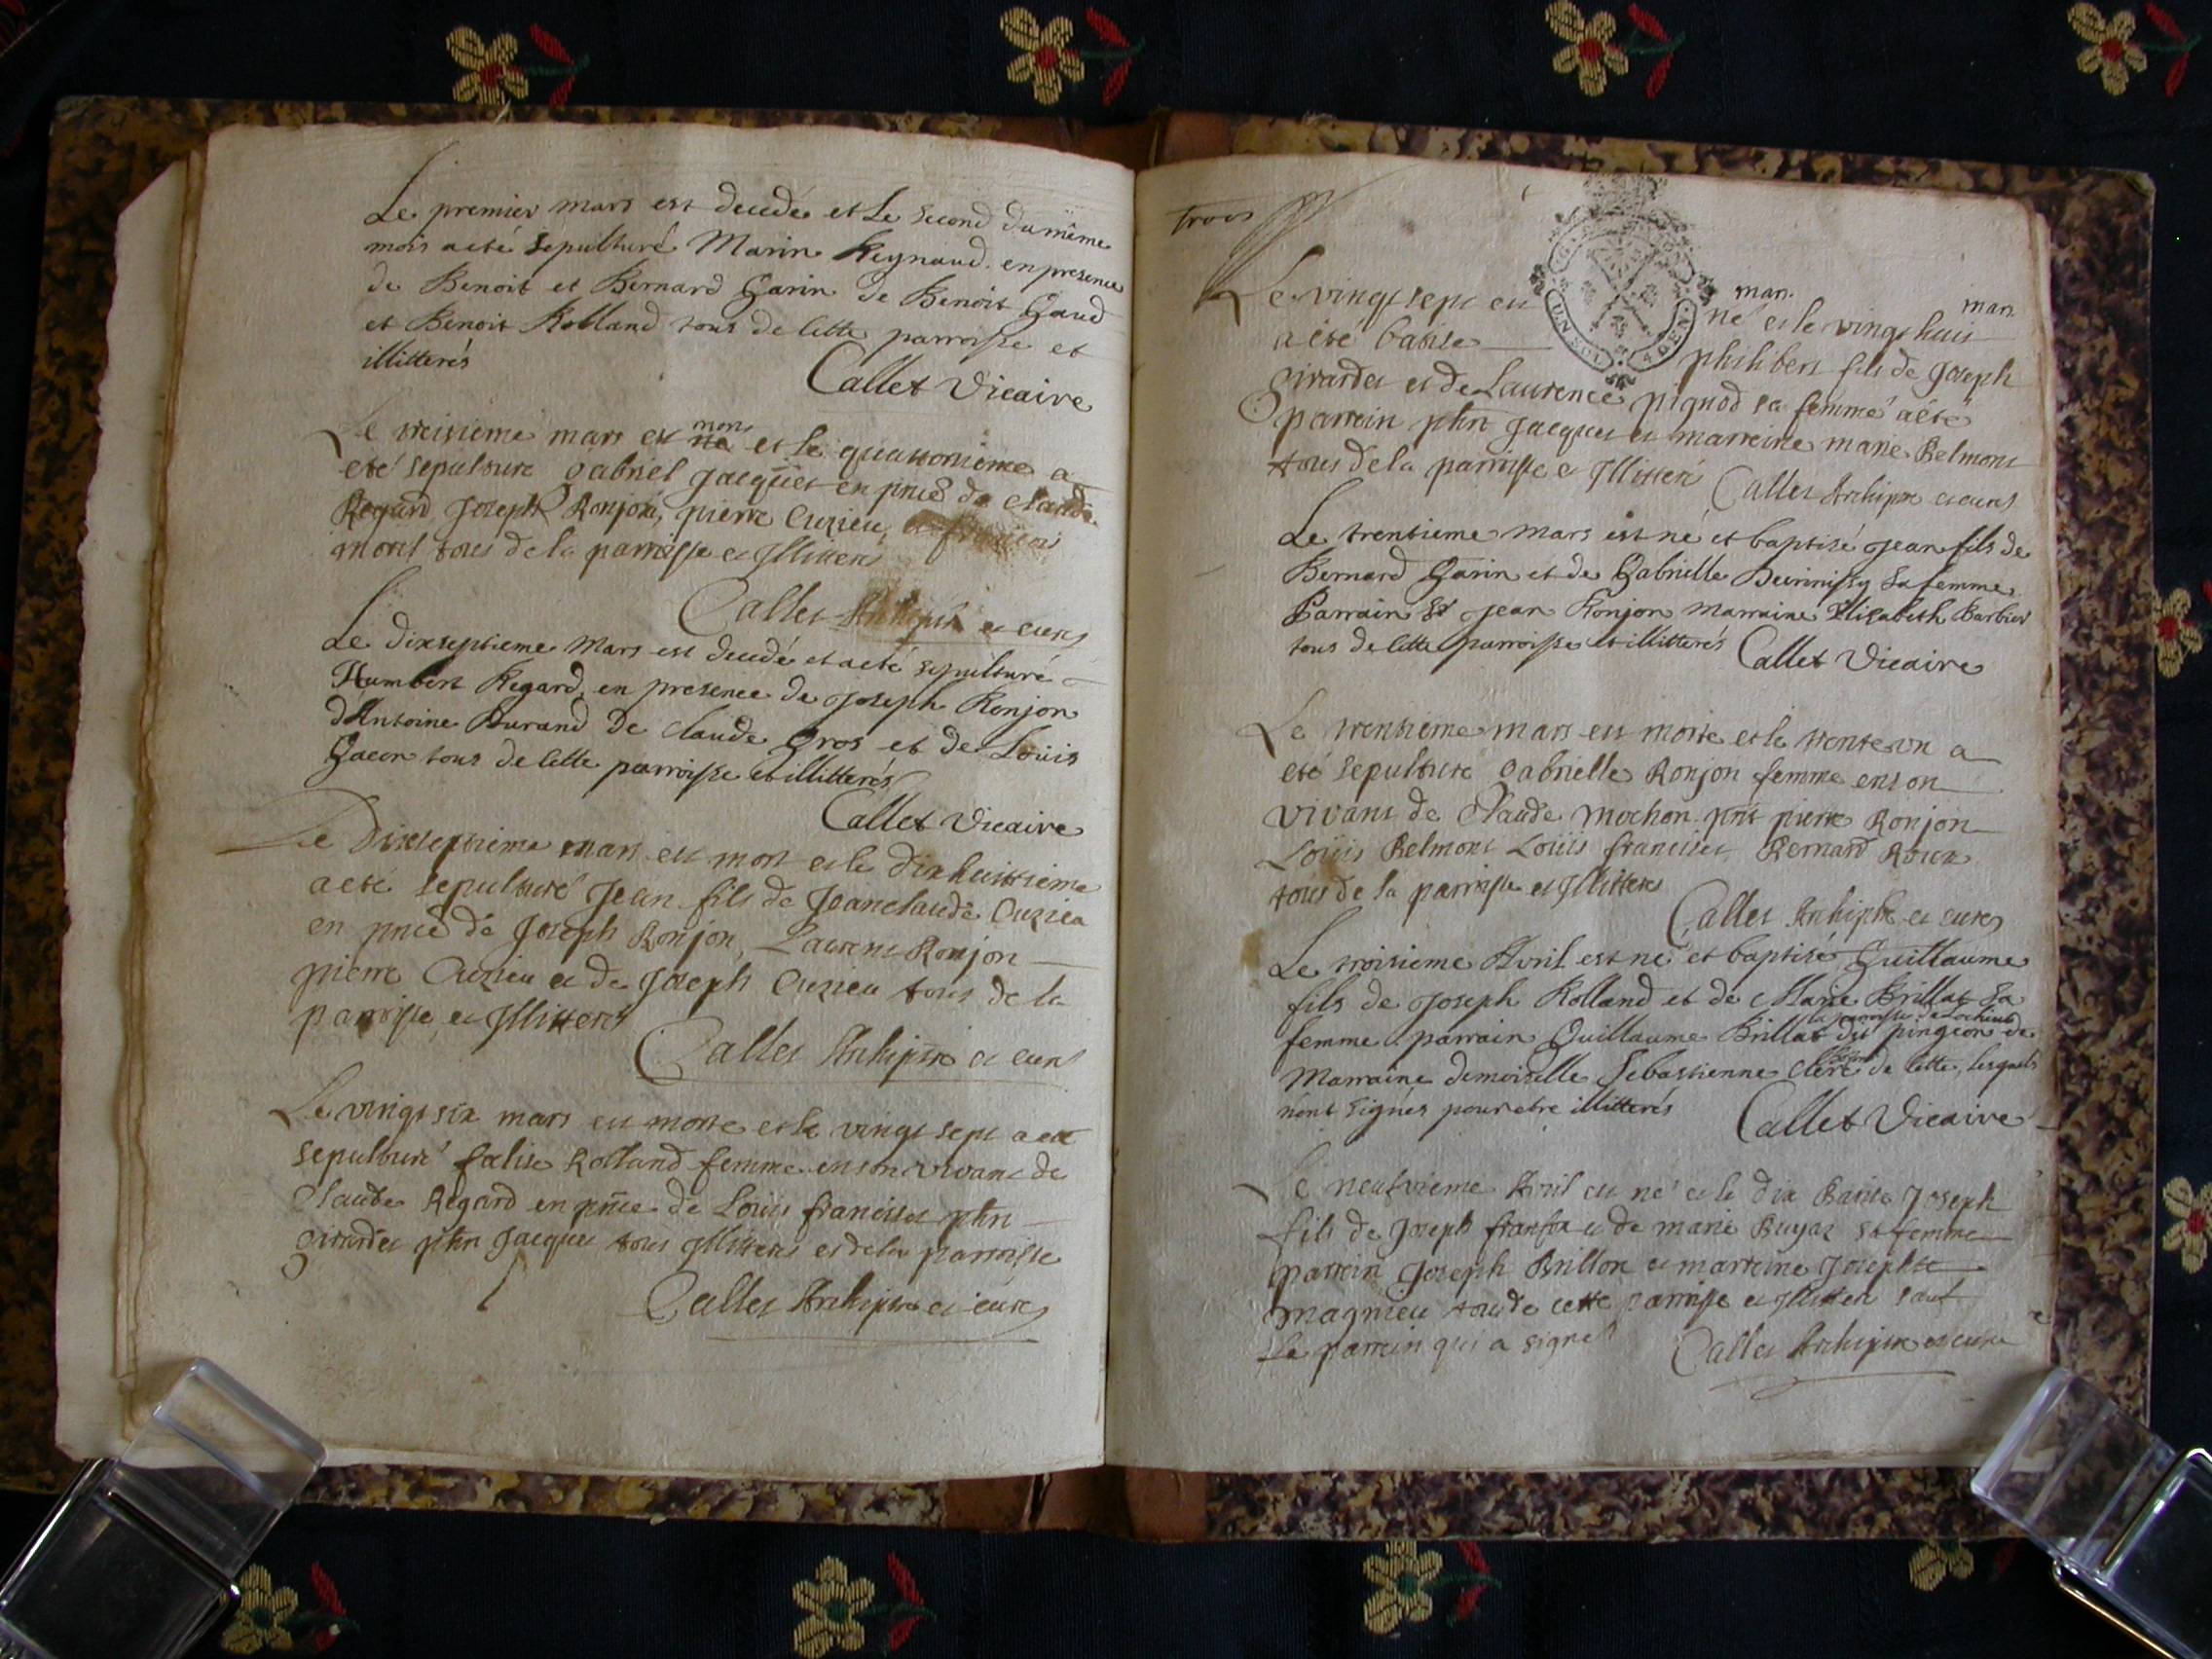 Le premier mars est decedé et Le second du même
mois a eté sepulturé Marin Reynaud. en presence
de Benoit et Bernard Garin de Benoit Gaud
et Benoit Rolland tous de cette parroisse et
illitterés
Callet Vicaire
Le treisieme mars est mort et le quatorsieme a
eté sepulture gabriel Jacquet en pnce de claude
Regard Joseph Ronjon, pierre Cuzieu,
tous de la parroisse et Illitteré
Callet Archiptre et curé
Le dixseptieme Mars est decedé et a eté sepulturé
Humbert Regard, en presence de Joseph Ronjon
d'Antoine Durand de Claude Gros et de Loüis
Gacon tous de cette parroisse et illitterés
Callet Vicaire
Le Dixseptieme mars est mort et le dixhuittieme
a eté sepulturé Jean fils de Jeanclaude Cuzieu
en pnce de Joseph Ronjon, Laurent Ronjon
pierre Cuzieu et de Joseph Cuzieu tous de la
parroisse et Illitteré
Callet Archiptre et curé
Le vingt six mars est morte et le vingt sept a eté
sepulturé felise Rolland femme en son vivant de
Claude Regard en pnce de Loüis francillet phri
girardet phri Jacquet tous Illitterés et de la parroisse
Callet Archiptre et curé
trois
Le vingt sept est
mars
né et le vingt huit
mars
a eté batise
UN SOL 4 DEN
philibert fils de Joseph
girardet et de Laurence pignod sa femme a eté
parrein phri Jacquet et marreine marie Belmont
tous de la parroisse et Illitteré
Callet Archiptre et curé
Le trentieme mars est né et baptisé jean fils de
Bernard Garin et de Gabrielle sa femme
Parrain Sr Jean Ronjon Marraine Elisabeth Barbier
tous de cette parroisse et illitterés
Callet Vicaire
Le trentieme mars est morte et le trente un a
eté sepulturé gabrielle Ronjon femme en son
vivant de Claude mochon pnt pierre Ronjon
Loüis Belmont Loüis francillet Bernard Roux
tous de la parroisse et Illitteré
Callet Archiptre et curé
Le troisieme Avril est né et baptisé Guillaume
fils de Joseph Rolland et de Marie Brillat Sa
la parroisse de Lochieu
femme parrain Guillaume Brillat dit pingeon de
Marraine demoiselle Sebastienne Clerc de cette, lesquels
n'ont signés pour etre illitterés
Callet Vicaire
Le neufvieme Avril est né et le dix Batise Joseph
fils de Joseph et de marie sa femme
parrein Joseph Brillon et marreine Josephte
magnieu tous de cette parroisse et Illitteré sauf
Le parrein qui a signé
Callet Archiptre et curé